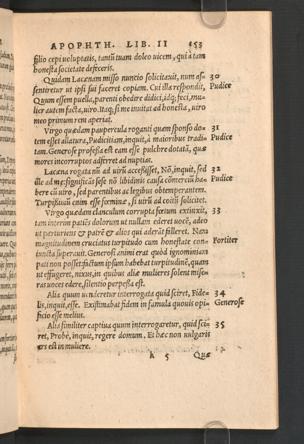 APOPHTH. LIB. II 153
filio cepi uoluptatis, tantũ tuam doleo uicem, qui à tam
honesta societate defeceris.
Quidam Lacænam misso nuncio solicitauit, num as- 30
sentiretur ut ipsi sui faceret copiam. Cui illa respondit, Pudice
Quum essem puella, parenti obedire didici, idq; feci, mu-
lier autem facta, uiro. Itaq; si me inuitat ad honesta, uiro
meo primum rem aperiat.
Virgo quædam paupercula roganti quam sponso do- 31
tem esset allatura, Pudicitiam, inquit, à maioribus tradi- Pudice
tam. Generose professa est eam esse pulchre dotatã, quæ
mores incorruptos adferret ad nuptias.
Lacæna rogata nũ ad uirũ accessisset, Nõ, inquit, sed 32
ille ad me: significãs sese nõ libidinis causa cõmerciũ ha- Pudice
bere cũ uiro, sed parentibus ac legibus obtemperantem.
Turpissimũ enim esse fœminæ, si uirũ ad coitũ solicitet.
Virgo quædam clanculum corrupta fœtum extinxit, 33
tam interim patiẽs dolorum ut nullam ederet uocẽ, adeo
ut parturiens & patrẽ & alios qui aderãt falleret. Nam
magnitudinem cruciatus turpitudo cum honestate con- Fortiter
iuncta superauit. Generosi animi erat quòd ignominiam
pati non posset: sictum ipsum habebat turpitudinẽ, quam
ut effugeret, nixus, in quibus aliæ mulieres solent mise-
ras uoces edere, silentio perpessa est.
Alia quum uẽderetur interrogata quid sciret, Fide- 34
lis, inquit, esse. Existimabat fidem in famula quouis opi- Generose
ficio esse melius.
Alia similiter captiua quum interrogaretur, quid sci- 35
ret, Probè, inquit, regere domum. Et hæc non uulgaris
ars est in muliere.
A 5 Quæ